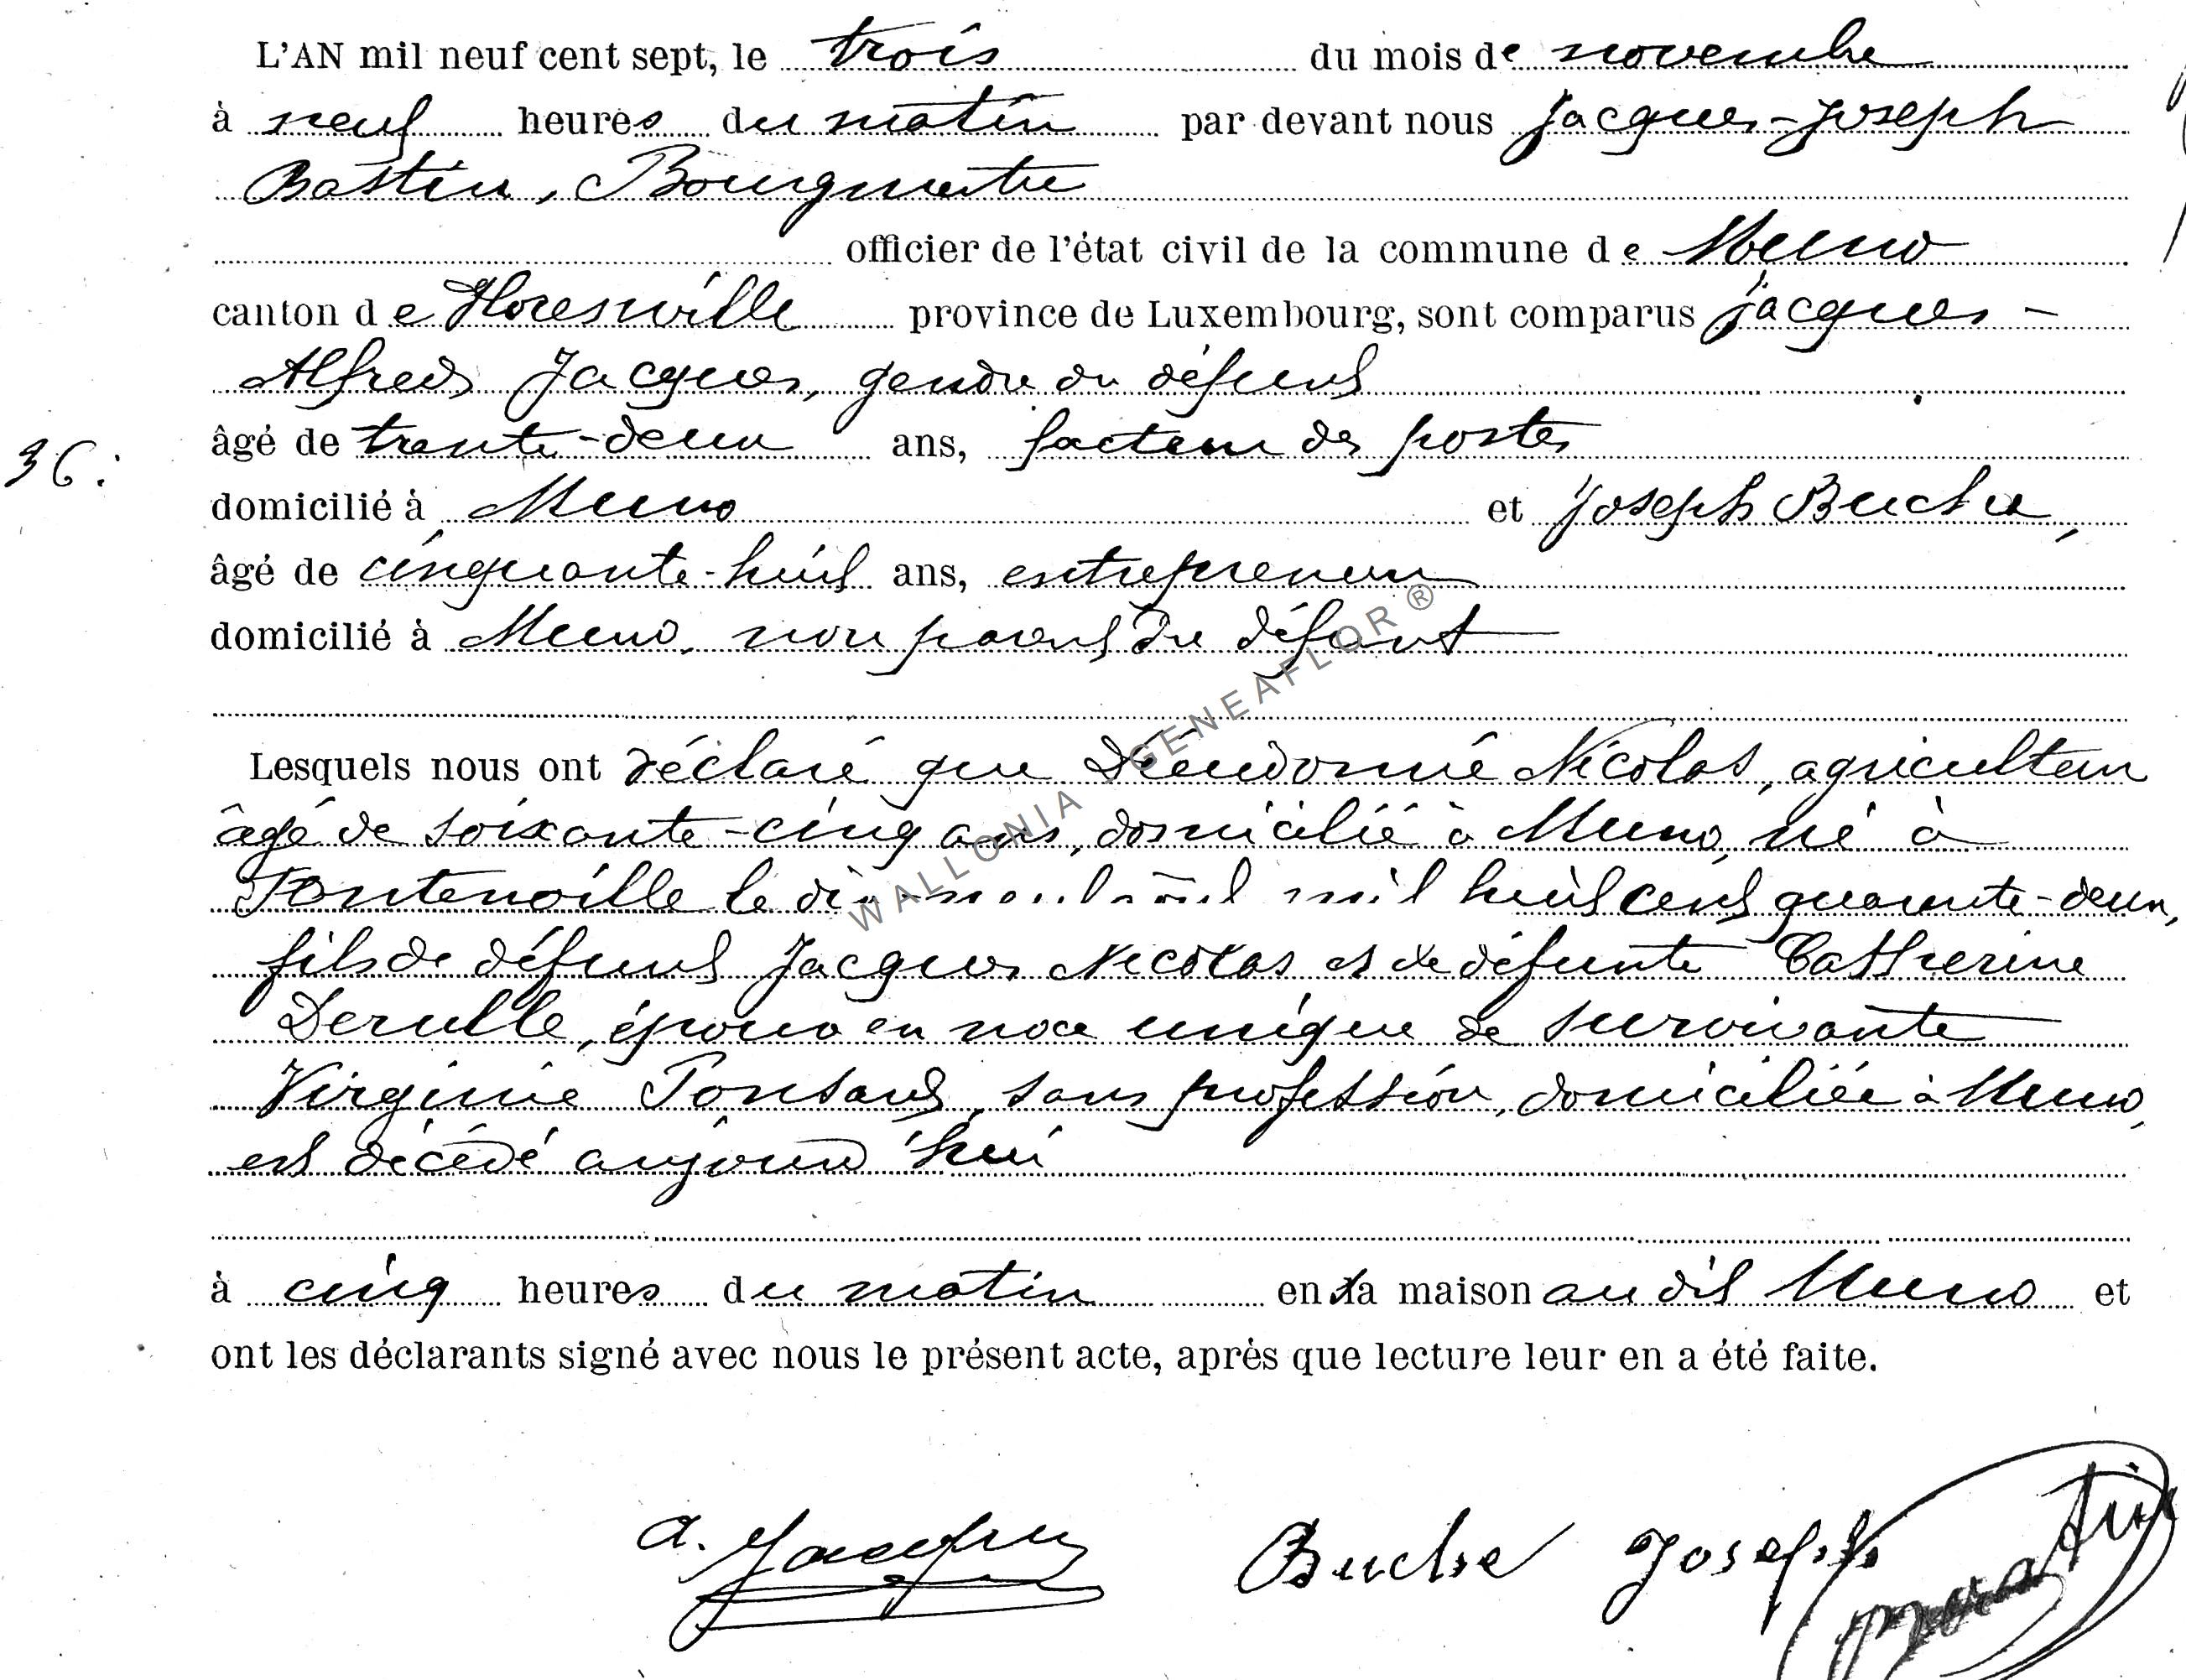 L'AN mil neuf cent sept, le trois du mois de novembre
à neuf heures du matin par devant nous Jacques-Joseph
Bastin, Bourgmestre
officier de l'état civil de la commune de Muno
canton de Florenville province de Luxembourg, sont comparus Jacques-
Alfred Jacques, gendre du défunt
âgé de trente-deux ans, facteur des postes
36.
domicilié à Muno et Joseph Buche,
âgé de cinquante-huit ans, entrepreneur
domicilié à Muno, non parent du défunt
Lesquels nous ont déclaré que Dieudonné Nicolas, agriculteur
âgé de soixante-cinq ans, domicilié à Muno, né à
Fontenoille le mil huit cent quarante-deux,
fils de défunt Jacques Nicolas et de défunte Catherine
Derulle, époux en noce unique de survivante
Virginie Ponsard, sans profession, domiciliée à Muno,
est décédé aujourd'hui
à cinq heures du matin en sa maison au dit Muno et
ont les déclarants signé avec nous le présent acte, après que lecture leur en a été faite.
A. Jacques Buche Joseph Bastin
WALLONIA GENEAFLOR ®